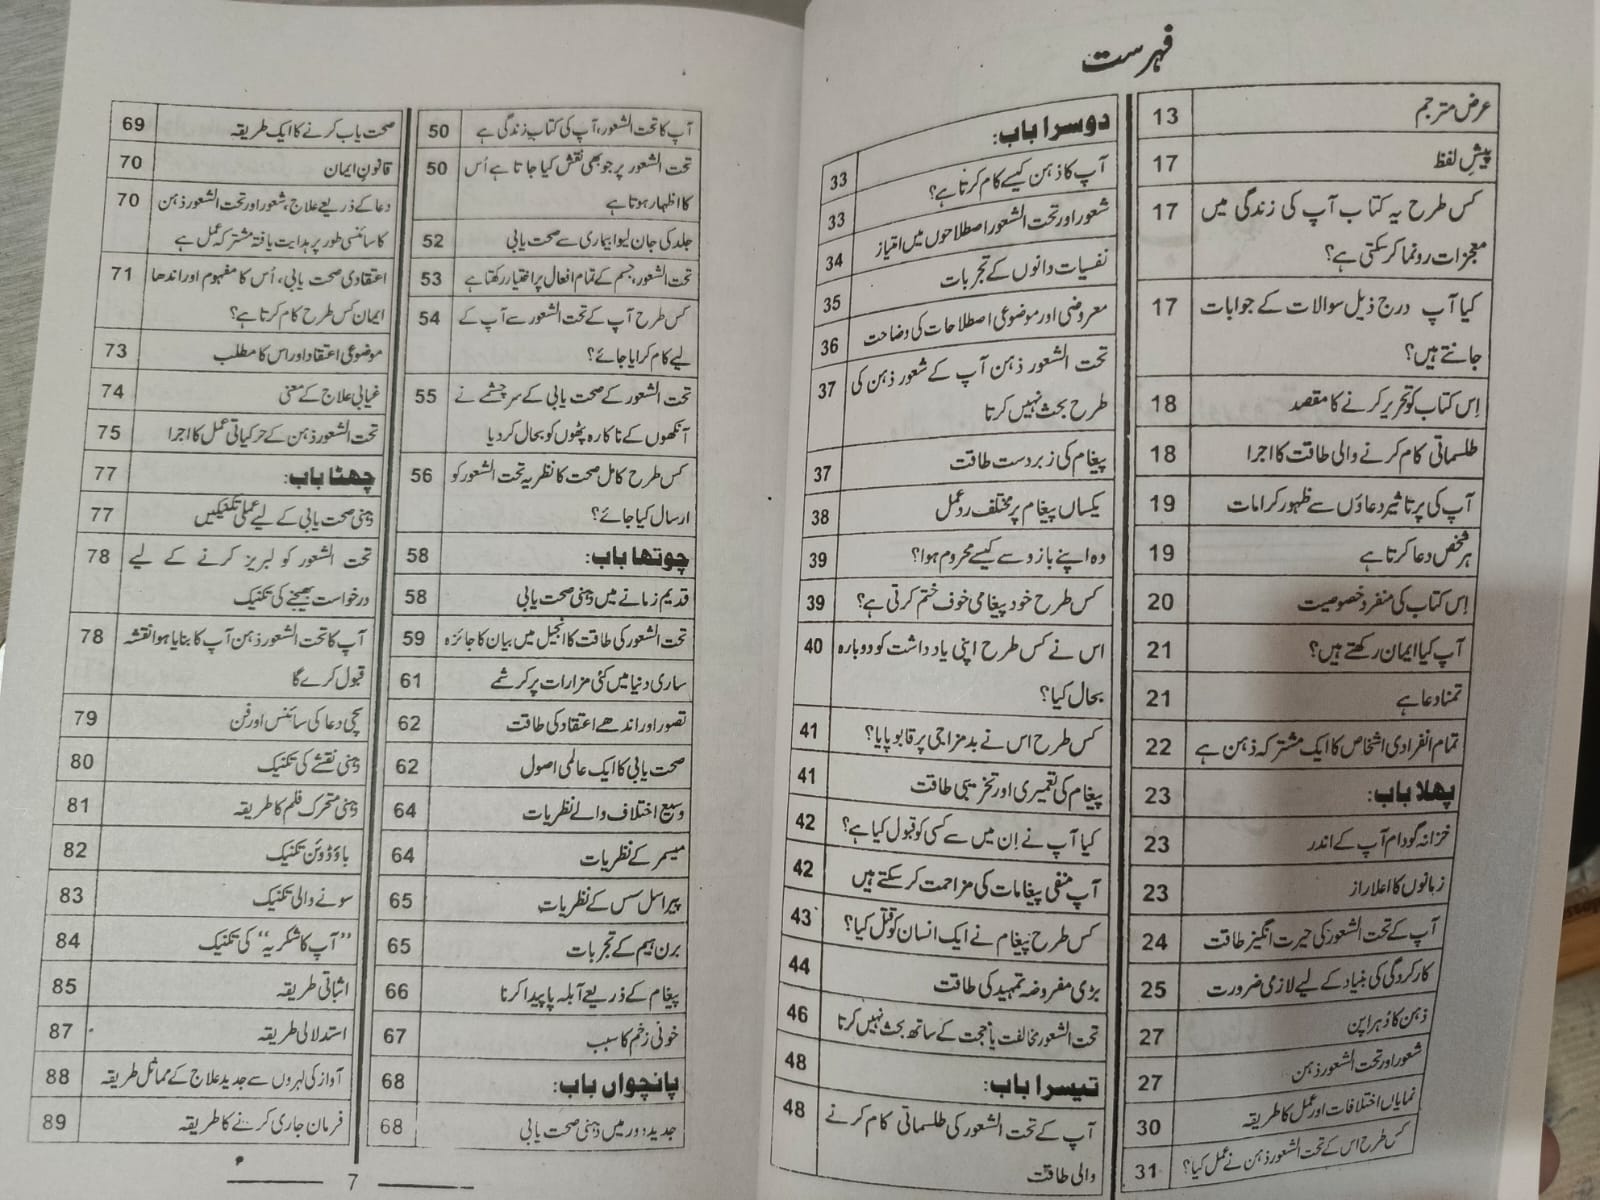 فہرست
عرض مترجم 13
پیش لفظ 17
کس طرح یہ کتاب آپ کی زندگی میں 17
معجزات رونما کر سکتی ہے؟
کیا آپ درج ذیل سوالات کے جوابات 17
جانتے ہیں؟
اِس کتاب کو تحریر کرنے کا مقصد 18
طلسماتی کام کرنے والی طاقت کا اجرا 18
آپ کی پرتاثیر دعاؤں سے ظہور کرامات 19
ہر شخص دعا کرتا ہے 19
اِس کتاب کی منفرد خصوصیت 20
آپ کیا ایمان رکھتے ہیں؟ 21
تمنا دعا ہے 21
تمام انفرادی اشخاص کا ایک مشترکہ ذہن ہے 22
پہلا باب: 23
خزانہ گودام آپ کے اندر 23
زمانوں کا اعلا راز 23
آپ کے تحت الشعور کی حیرت انگیز طاقت 24
کارکردگی کی بنیاد کے لیے لازمی ضرورت 25
ذہن کا دُہرا پن 27
شعور اور تحت الشعور ذہن 27
نمایاں اختلافات اور عمل کا طریقہ 30
کس طرح اس کے تحت الشعور ذہن نے عمل کیا؟ 31
دوسرا باب: 33
آپ کا ذہن کیسے کام کرتا ہے؟ 33
شعور اور تحت الشعور اصطلاحوں میں امتیاز 34
نفسیات دانوں کے تجربات 35
معروضی اور موضوعی اصطلاحات کی وضاحت 36
تحت الشعور ذہن آپ کے شعور ذہن کی 37
طرح بحث نہیں کرتا
پیغام کی زبردست طاقت 37
یکساں پیغام پر مختلف ردعمل 38
وہ اپنے بازو سے کیسے محروم ہوا؟ 39
کس طرح خود پیغامی خوف ختم کرتی ہے؟ 39
اس نے کس طرح اپنی یادداشت کو دوبارہ 40
بحال کیا؟
کس طرح اس نے بدمزاجی پر قابو پایا؟ 41
پیغام کی تعمیری اور تخریبی طاقت 41
کیا آپ نے اِن میں سے کسی کو قبول کیا ہے؟ 42
آپ منفی پیغامات کی مزاحمت کر سکتے ہیں 42
کس طرح پیغام نے ایک انسان کو قتل کیا؟ 43
بڑی مفروضہ تمہید کی طاقت 44
تحت الشعور مخالفت یا حجت کے ساتھ بحث نہیں کرتا 46
تیسرا باب: 48
آپ کے تحت الشعور کی طلسماتی کام کرنے 48
والی طاقت
آپ کا تحت الشعور، آپ کی کتاب زندگی ہے 50
تحت الشعور پر جو بھی نقش کیا جاتا ہے اُس 50
کا اظہار ہوتا ہے
جلد کی جان لیوا بیماری سے صحت یابی 52
تحت الشعور، جسم کے تمام افعال پر اختیار رکھتا ہے 53
کس طرح آپ کے تحت الشعور سے آپ کے 54
لیے کام کرایا جائے؟
تحت الشعور کے صحت یابی کے سرچشمے نے 55
آنکھوں کے ناکارہ پٹھوں کو بحال کر دیا
کس طرح کامل صحت کا نظریہ تحت الشعور کو 56
ارسال کیا جائے؟
چوتھا باب: 58
قدیم زمانے میں ذہنی صحت یابی 58
تحت الشعور کی طاقت کا انجیل میں بیان کا جائزہ 59
ساری دنیا میں کئی مزارات پر کرشمے 61
تصور اور اندھے اعتقاد کی طاقت 62
صحت یابی کا ایک عالمی اصول 62
وسیع اختلاف والے نظریات 64
میسمر کے نظریات 64
پیراسل سس کے نظریات 65
برن ہیم کے تجربات 65
پیغام کے ذریعے آبلہ پا پیدا کرنا 66
خونی زخم کا سبب 67
پانچواں باب: 68
جدید دور میں ذہنی صحت یابی 68
صحت یاب کرنے کا ایک طریقہ 69
قانونِ ایمان 70
دعا کے ذریعے علاج، شعور اور تحت الشعور ذہن 70
کا سائنسی طور پر ہدایت یافتہ مشترکہ عمل ہے
اعتقادی صحت یابی، اُس کا مفہوم اور اندھا 71
ایمان کس طرح کام کرتا ہے؟
موضوعی اعتقاد اور اس کا مطلب 73
غیابی علاج کے معنی 74
تحت الشعور ذہن کے حرکیاتی عمل کا اجرا 75
چھٹا باب: 77
ذہنی صحت یابی کے لیے عملی تکنیکیں 77
تحت الشعور کو لبریز کرنے کے لیے 78
درخواست بھیجنے کی تکنیک
آپ کا تحت الشعور ذہن آپ کا بنایا ہوا نقشہ 78
قبول کرے گا
سچی دعا کی سائنس اور فن 79
ذہنی نقشے کی تکنیک 80
ذہنی متحرک فلم کا طریقہ 81
باؤڈوئن تکنیک 82
سونے والی تکنیک 83
"آپ کا شکریہ" کی تکنیک 84
اثباتی طریقہ 85
استدلالی طریقہ 87
آواز کی لہروں سے جدید علاج کے مماثل طریقہ 88
فرمان جاری کرنے کا طریقہ 89
7